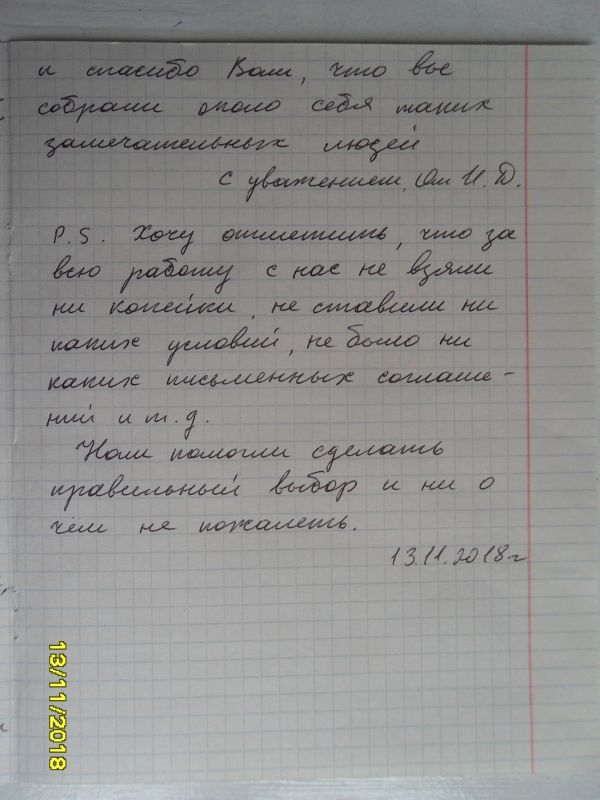 и спасибо Вам, что вы
собрали около себя таких
замечательных людей
с уважением, Ом И. Д.
P.S. Хочу отметить, что за
всю работу с нас не взяли
ни копейки, не ставили ни
каких условий, не было ни
каких письменных соглаше-
ний и т.д.
Нам помогли сделать
правильный выбор и ни о
чём не пожалеть.
13.11.2018г
13/11/2018